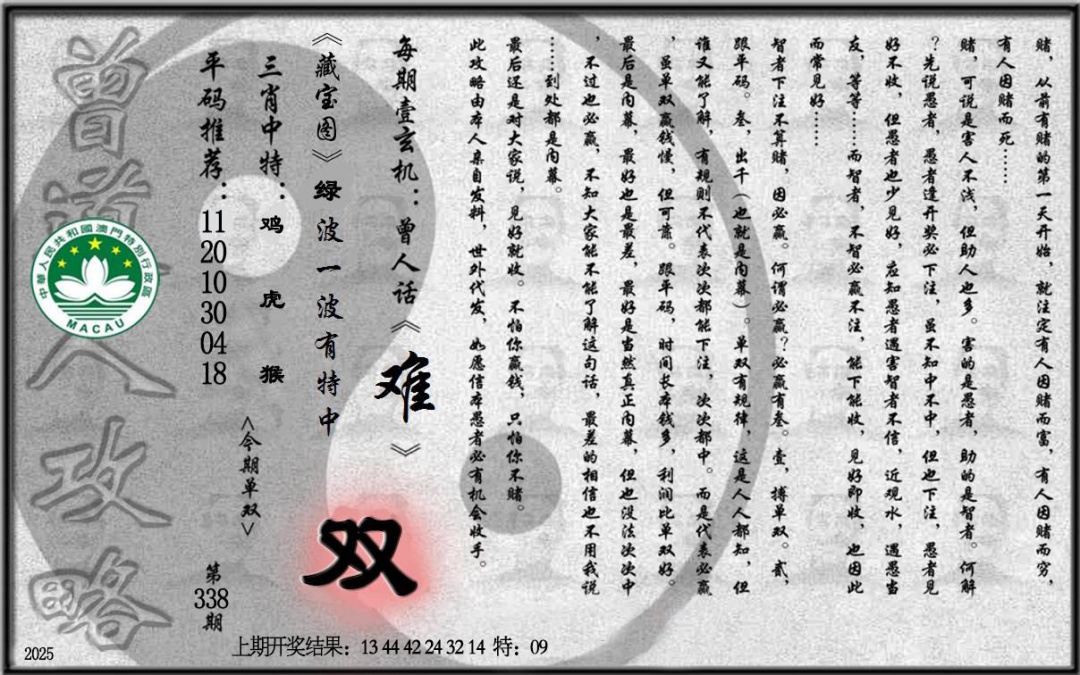 赌，从前有赌的第一天开始，就注定有人因赌而富，有人因赌而穷，
有人因赌而死……
赌，可说是害人不浅，但助人也多。害的是愚者，助的是智者。何解
？先说愚者，愚者逢开奖必下注，虽不知中不中，但也下注，愚者见
好不收，但愚者也少见好，应知愚者遇害智者不信，近观水，遇愚当
友，等等……而智者，不智必赢不注，能下能收，见好即收，也因此
而常见好……
智者下注不算赌，因必赢。何谓必赢？必赢有叁。壹，搏单双。贰，
跟平码。叁，出千（也就是内幕）。单双有规律，这是人人都知，但
谁又能了解，有规则不代表次次都能下注，次次都中。而是代表必赢
，虽单双赢钱慢，但可靠。跟平码，时间长本钱多，利润比单双好。
最后是内幕，最好也是最差，最好是当然真正内幕，但也没法次次中
，不过也必赢，不知大家能不能了解这句话，最差的相信也不用我说
……到处都是内幕。
最后还是对大家说，见好就收。不怕你赢钱，只怕你不赌。
此攻略由本人亲自发料，世外代发，如愿信本愚者必有机会收手。
每期壹玄机：曾人话《难》
《藏宝图》绿波一波有特中
双
三肖中特：鸡 虎 猴
<今期单双>
平码推荐：11 20 10 30 04 18
第338期
曾道人攻略
中華人民共和國澳門特別行政區
MACAU
2025
上期开奖结果：13 44 42 24 32 14 特：09